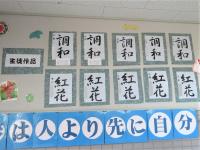 生徒作品
調和 調和 調和 調和 調和
紅花 紅花 紅花 紅花 紅花
は人より先に自分